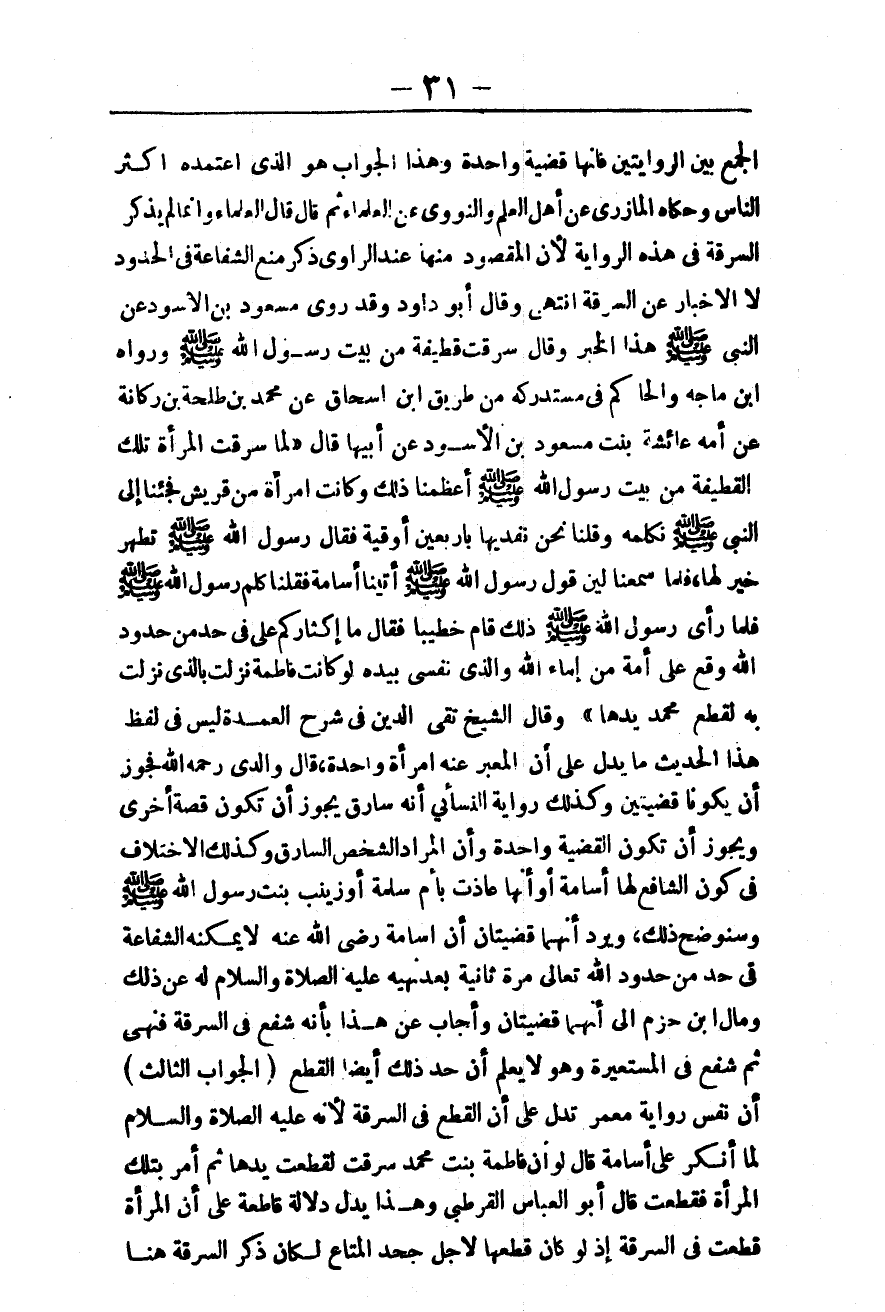 — ٣١ —
الجمع بين الروايتين فانها قضية واحدة وهذا الجواب هو الذى اعتمده اكثر
الناس وحكاه المازرى عن أهل العلم والنووى عن العلماء ثم قال قال العلماء وانما لم يذكر
السرقة فى هذه الرواية لأن المقصود منها عند الراوى ذكر منع الشفاعة فى الحدود
لا الاخبار عن السرقة انتهى وقال أبو داود وقد روى مسعود بن الاسود عن
النبى ﷺ هذا الخبر وقال سرقت قطيفة من بيت رسول الله ﷺ ورواه
ابن ماجه والحاكم فى مستدركه من طريق ابن اسحاق عن محمد بن طلحة بن ركانة
عن أمه عائشة بنت مسعود بن الأسود عن أبيها قال «لما سرقت المرأة تلك
القطيفة من بيت رسول الله ﷺ أعظمنا ذلك وكانت امرأة من قريش فجئنا إلى
النبى ﷺ نكلمه وقلنا نحن نفديها باربعين أوقية فقال رسول الله ﷺ تطهر
خير لها، فلما سمعنا لين قول رسول الله ﷺ أتينا أسامة فقلنا كلم رسول الله ﷺ
فلما رأى رسول الله ﷺ ذلك قام خطيبا فقال ما إكثاركم على فى حد من حدود
الله وقع على أمة من إماء الله والذى نفسى بيده لو كانت فاطمة نزلت بالذى نزلت
به لقطع محمد يدها» وقال الشيخ تقى الدين فى شرح العمدة ليس فى لفظ
هذا الحديث ما يدل على أن المعبر عنه امرأة واحدة، قال والدى رحمه الله فجوز
أن يكونا قضيتين وكذلك رواية النسأبي أنه سارق يجوز أن تكون قصة أخرى
ويجوز أن تكون القضية واحدة وأن المراد الشخص السارق وكذلك الاختلاف
فى كون الشافع لها أسامة أو أنها عاذت بأم سلمة أو زينب بنت رسول الله ﷺ
وسنوضح ذلك، ويرد أنهما قضيتان أن اسامة رضى الله عنه لا يمكنه الشفاعة
فى حد من حدود الله تعالى مرة ثانية بعد نهيه عليه الصلاة والسلام له عن ذلك
ومال ابن حزم الى أنهما قضيتان وأجاب عن هذا بأنه شفع فى السرقة فنهى
ثم شفع فى المستعيرة وهو لا يعلم أن حد ذلك أيضا القطع (الجواب الثالث)
أن نفس رواية معمر تدل على أن القطع فى السرقة لأنه عليه الصلاة والسلام
لما أنكر على أسامة قال لو أن فاطمة بنت محمد سرقت لقطعت يدها ثم أمر بتلك
المرأة فقطعت قال أبو العباس القرطبي وهذا يدل دلالة قاطعة على أن المرأة
قطعت فى السرقة إذ لو كان قطعها لاجل جحد المتاع لكان ذكر السرقة هنا